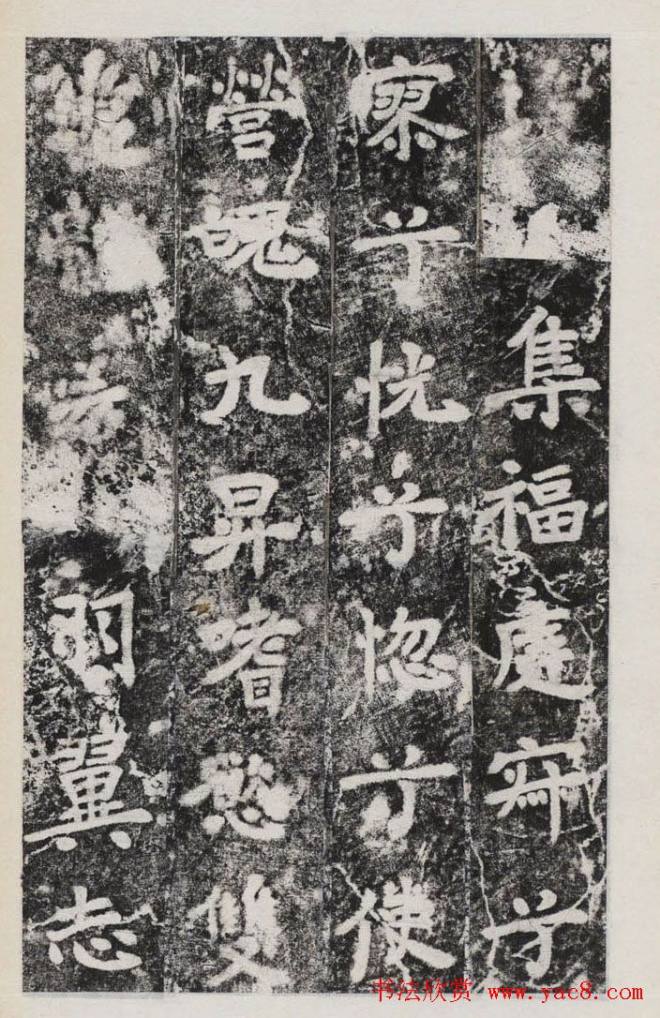 集福虗㝛兮
寥兮怳兮惚兮使
營魄九昇嗜慾雙
羽翼志
书法欣赏 www.yac8.com